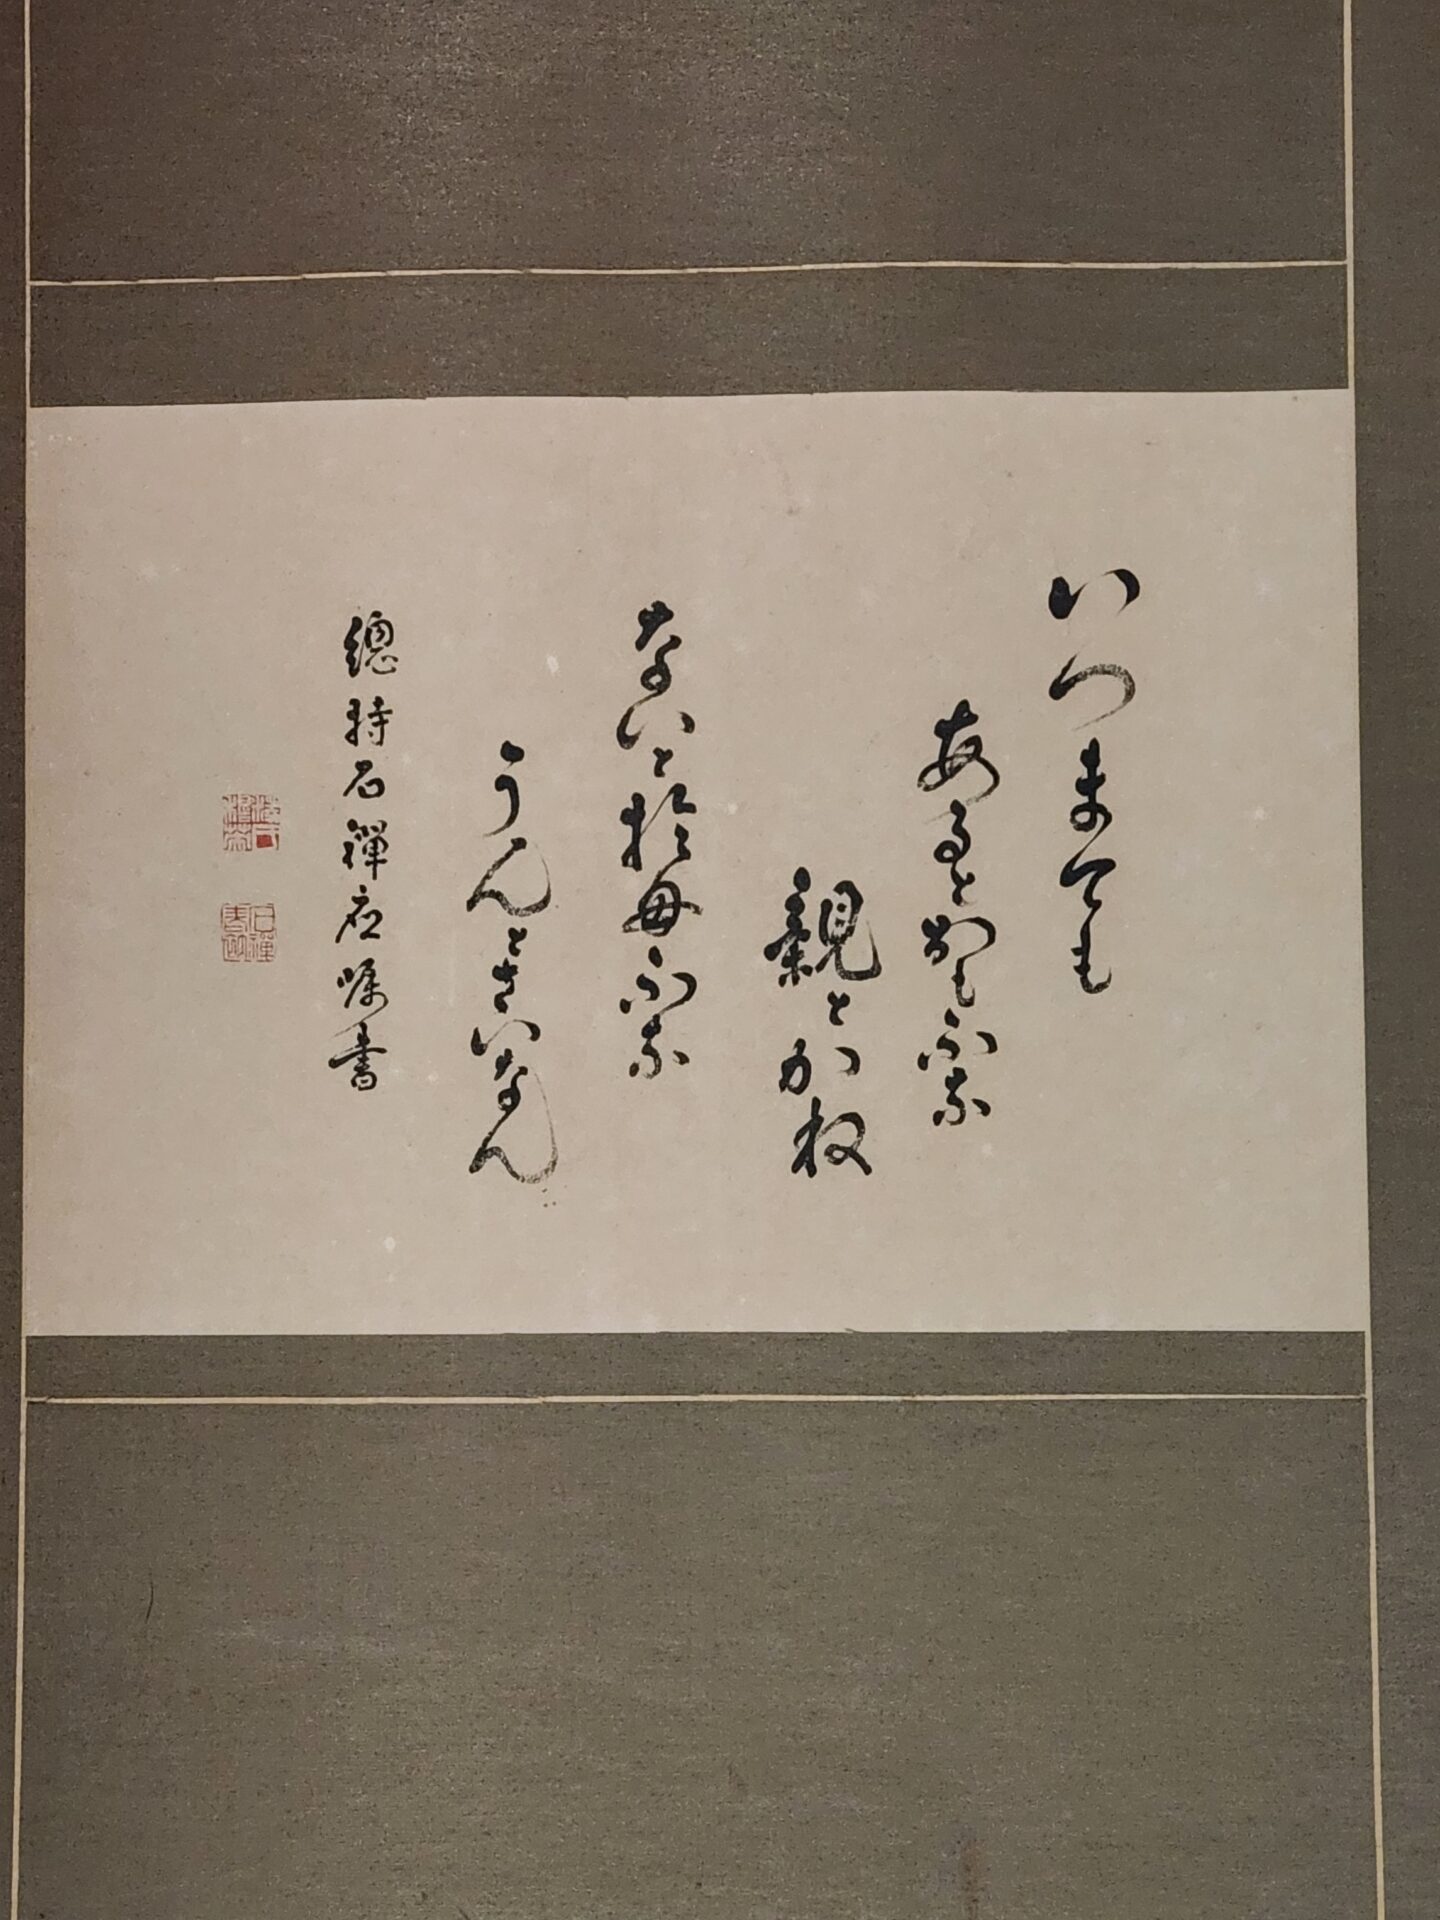 いつまても
あるとおもふな
親とかね
ないとおもふな
うんとさいなん
總持石禅応嘱書